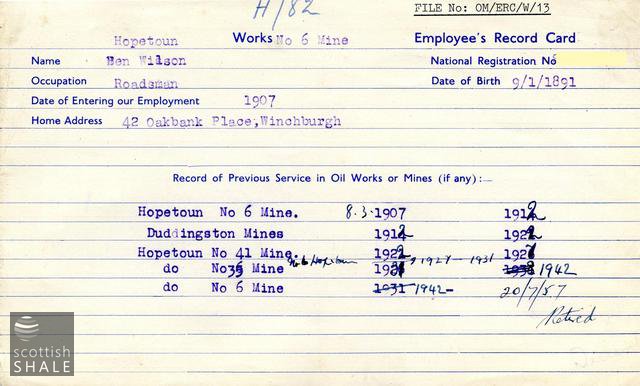 H/82
FILE No: OM/ERC/W/13
Hopetoun Works No 6 Mine Employee's Record Card
Name Ben Wilson National Registration No
Occupation Roadsman Date of Birth 9/1/1891
Date of Entering our Employment 1907
Home Address 42 Oakbank Place, Winchburgh
Record of Previous Service in Oil Works or Mines (if any):—
Hopetoun No 6 Mine. 8.3.1907 1912
Duddingston Mines 1912 1922
Hopetoun No 41 Mine. 1922 1927
No 6 Hopetoun 1927 - 1931
do No 35 Mine 1931 1938 1942
do No 6 Mine 1931 1942- 20/7/57
Retired
scottish
SHALE